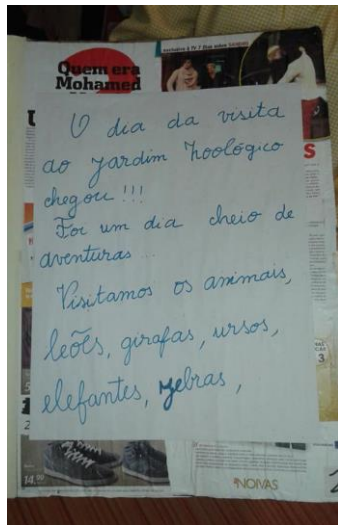 exclusivo à TV 7 dias sobre
Quem era
Mohamed
O dia da visita
ao Jardim Zoológico
chegou !!!
Foi um dia cheio de
aventuras...
Visitamos os animais,
leões, girafas, ursos,
elefantes, zebras,
3
14,99
NOIVAS